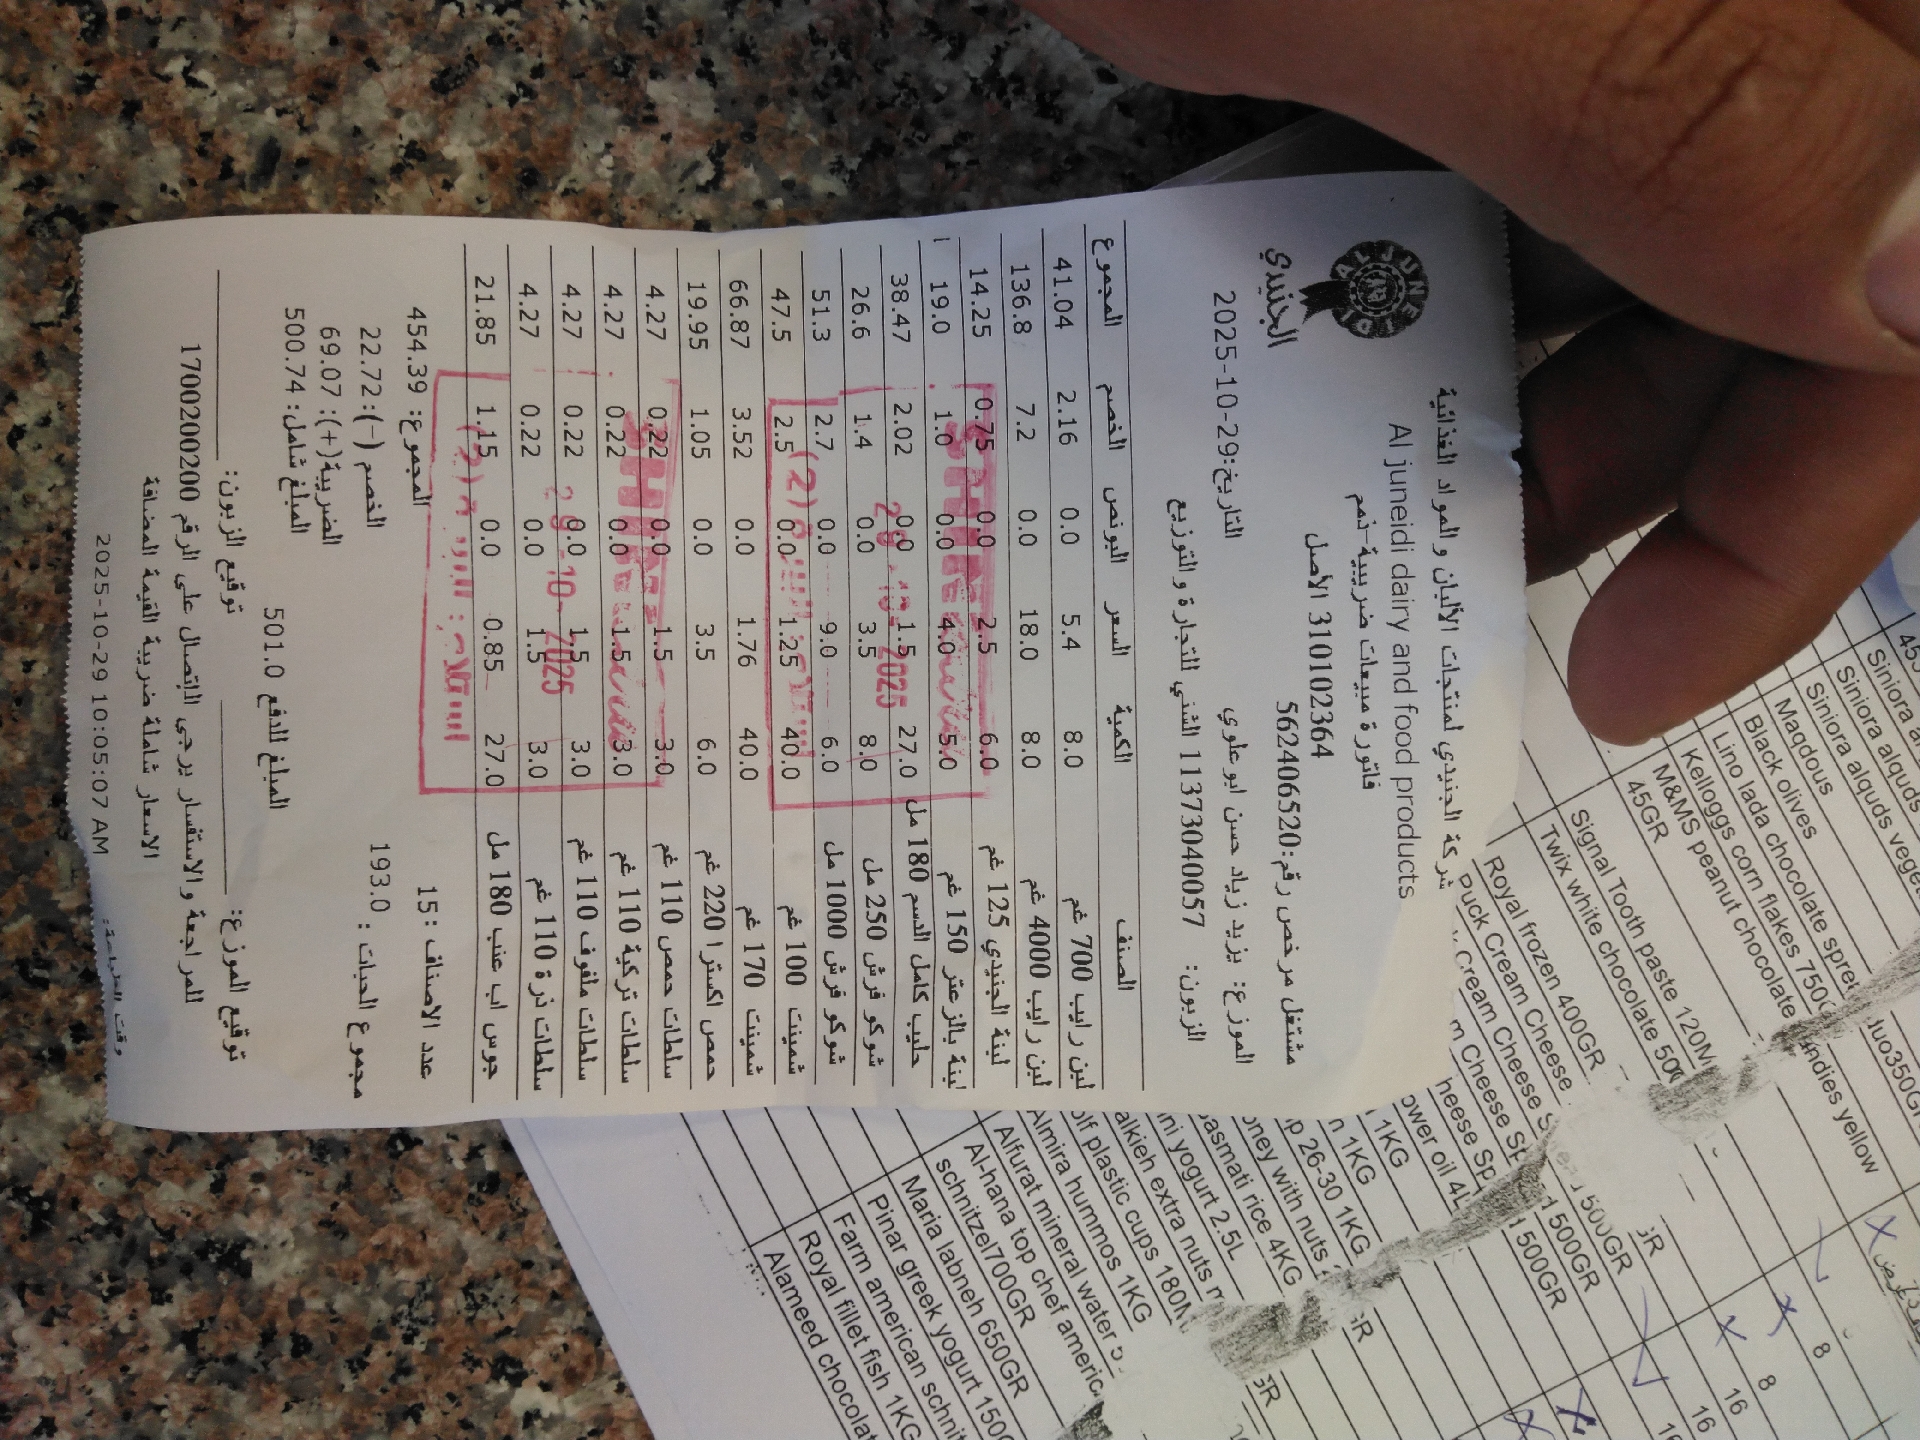 AL JUNEIDI
الجنيدي
شركة الجنيدي لمنتجات الألبان و المواد الغذائية
Al juneidi dairy and food products
فاتورة مبيعات ضريبية-ذمم
310102364 الأصل
مشتغل مرخص رقم:562406520
التاريخ:2025-10-29
الموزع: يزيد زياد حسن ابو علوي
الزبون: 11373040057 الثني للتجارة و التوزيع
الصنف الكمية السعر البونص الخصم المجموع
لبن رايب 700 غم 8.0 5.4 0.0 2.16 41.04
لبن رايب 4000 غم 8.0 18.0 0.0 7.2 136.8
لبنة الجنيدي 125 غم 6.0 2.5 0.0 0.75 14.25
لبنة بالزعتر 150 غم 5.0 4.0 0.0 1.0 19.0
حليب كامل الدسم 180 مل 27.0 1.5 0.0 2.02 38.47
شوكو فرش 250 مل 8.0 3.5 0.0 1.4 26.6
شوكو فرش 1000 مل 6.0 9.0 0.0 2.7 51.3
شمينت 100 غم 40.0 1.25 0.0 2.5 47.5
شمينت 170 غم 40.0 1.76 0.0 3.52 66.87
حمص اكسترا 220 غم 6.0 3.5 0.0 1.05 19.95
سلطات حمص 110 غم 3.0 1.5 0.0 0.22 4.27
سلطات تركية 110 غم 3.0 1.5 0.0 0.22 4.27
سلطات ملفوف 110 غم 3.0 1.5 0.0 0.22 4.27
سلطات ذرة 110 غم 3.0 1.5 0.0 0.22 4.27
جوس اب عنب 180 مل 27.0 0.85 0.0 1.15 21.85
29-10-2025
(2)
29-10-2025
عدد الاصناف :15
المجموع: 454.39
مجموع الحبات : 193.0
الخصم (-): 22.72
الضريبة(+): 69.07
المبلغ شامل: 500.74
المبلغ الدفع 501.0
توقيع الموزع:
توقيع الزبون:
للمراجعة و الاستفسار يرجى الاتصال على الرقم 1700200200
الاسعار شاملة ضريبة القيمة المضافة
وقت الطباعة: 2025-10-29 10:05:07 AM
Siniora alquds
Siniora alquds
Maqdous
Black olives
Lino lada chocolate spre
Kelloggs corn flakes 750
M&MS peanut chocolate
45GR
Signal Tooth paste 120M
Twix white chocolate 50
Royal frozen 400GR
Puck Cream Cheese
Cream Cheese S
m Cheese Sp
heese Sp
500GR
500GR
500GR
ower oil 4L
1KG
1KG
p 26-30 1KG
oney with nuts
asmati rice 4KG
ni yogurt 2.5L
alkieh extra nuts
olf plastic cups 180M
Almira hummos 1KG
Alfurat mineral water
Al-hana top chef americ
schnitzel700GR
Maria labneh 650GR
Pinar greek yogurt 150
Farm american schnit
Royal fillet fish 1KG
Alameed chocolat
ndies yellow
8
8
16
16